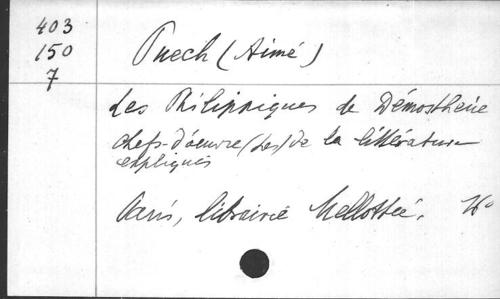 403
150
7
Puech (Aimé)
Les Philippiques de Démosthène
chefs-d'oeuvre (Les) de la littérature
expliqués
Paris, librairie Mellottée. 16°